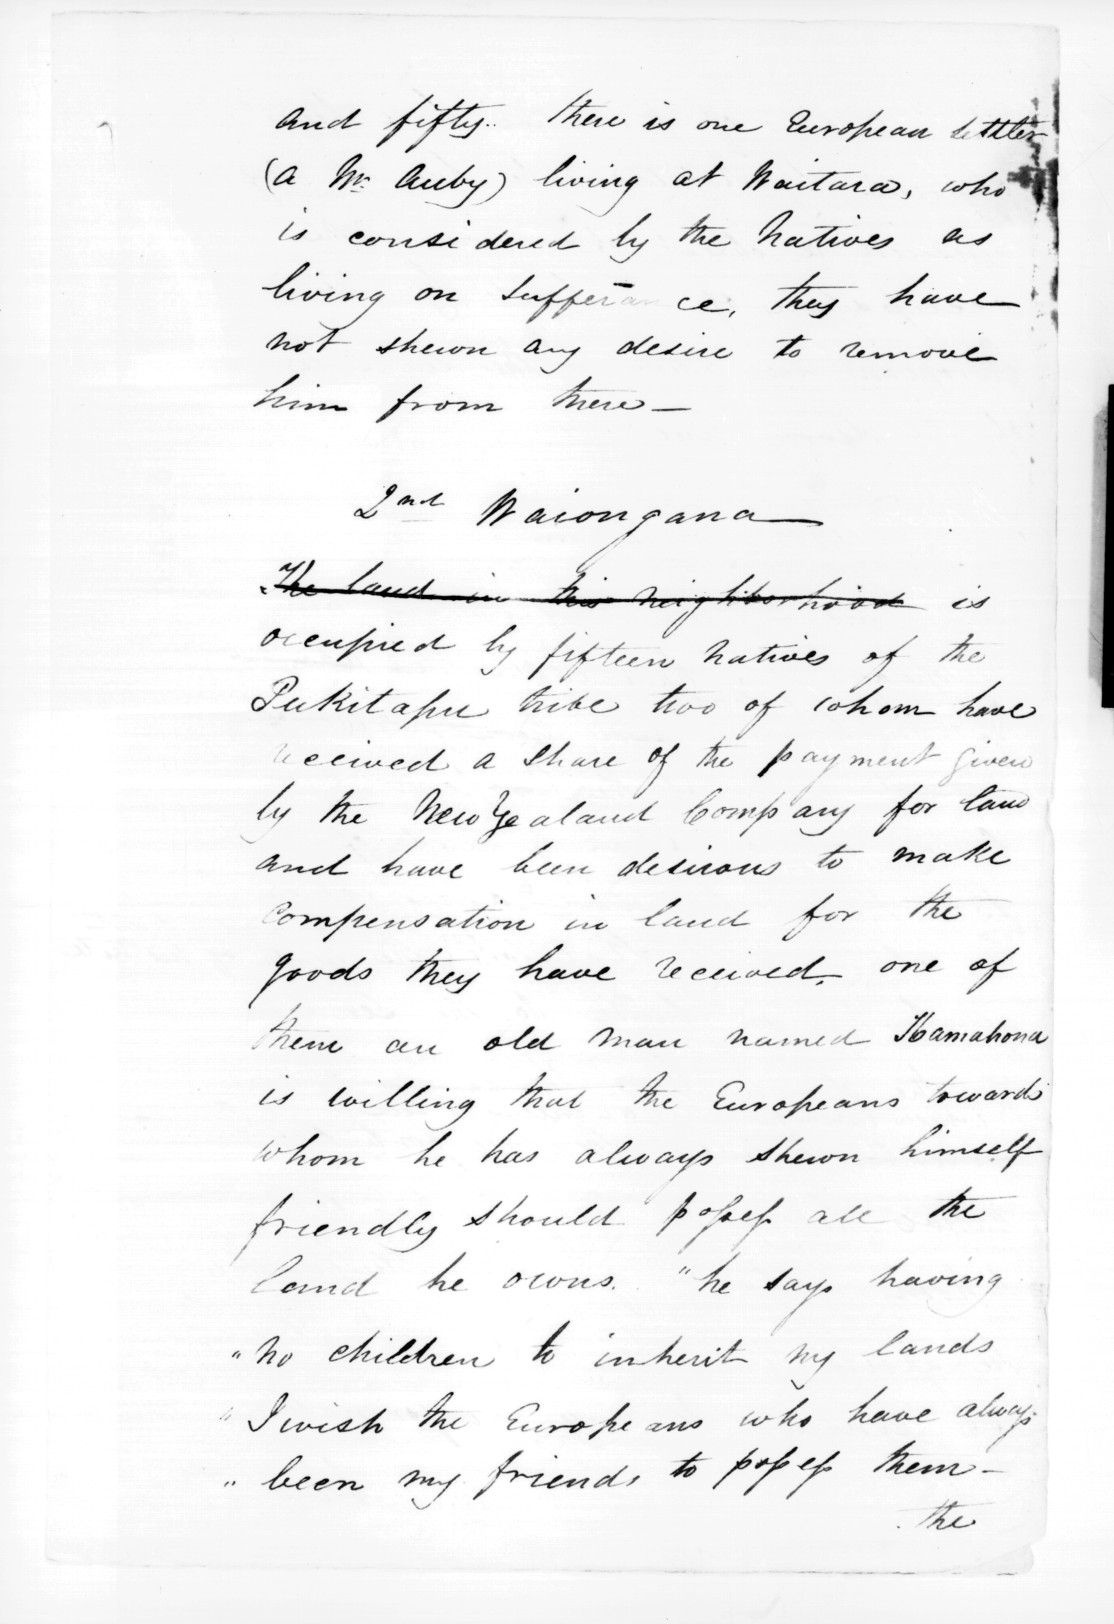 and fifty. there is one European settler
(a Mr. Auby) living at Waitara, who
is considered by the Natives as
living on sufferance, they have
not shewn any desire to remove
him from there —
2nd Waiongana
The land in this neighborhood is
occupied by fifteen natives of the
Pukitapu tribe two of whom have
received a share of the payment given
by the New Zealand Company for land
and have been desirous to make
compensation in land for the
goods they have received, one of
them an old man named Hamahona
is willing that the Europeans towards
whom he has always shewn himself
friendly should possess all the
land he owns. "he says having
"no children to inherit my lands
"I wish the Europeans who have always
"been my friends to possess them —
the